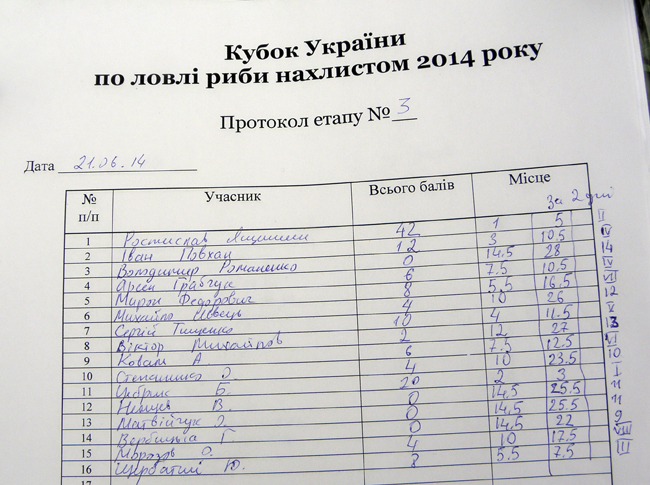 Кубок України
по ловлі риби нахлистом 2014 року
Протокол етапу № 3
Дата 21.06.14
№ п/п Учасник Всього балів Місце За 2 дні
1 Ростислав 42 1 5 II
2 Іван Повхан 12 3 10.5 IV
3 Володимир Романенко 0 14.5 28 14
4 Арсен Грабчук 6 7.5 10.5 IV
5 Мирон Федорович 8 5.5 16.5 VII
6 Михайло Швець 4 10 26 12
7 Сергій Тищенко 10 4 11.5 V
8 Віктор Михайлов 2 12 27 13
9 Коваль А 6 7.5 12.5 VI
10 4 10 23.5 10
11 Б. 20 2 3 I
12 Немцев В. 0 14.5 25.5 11
13 Матвійчук О. 0 14.5 25.5 11
14 Вербицька Г 0 14.5 22 9
15 Морозов О. 4 10 17.5 VIII
16 Щербатий Ю. 8 5.5 7.5 III
17